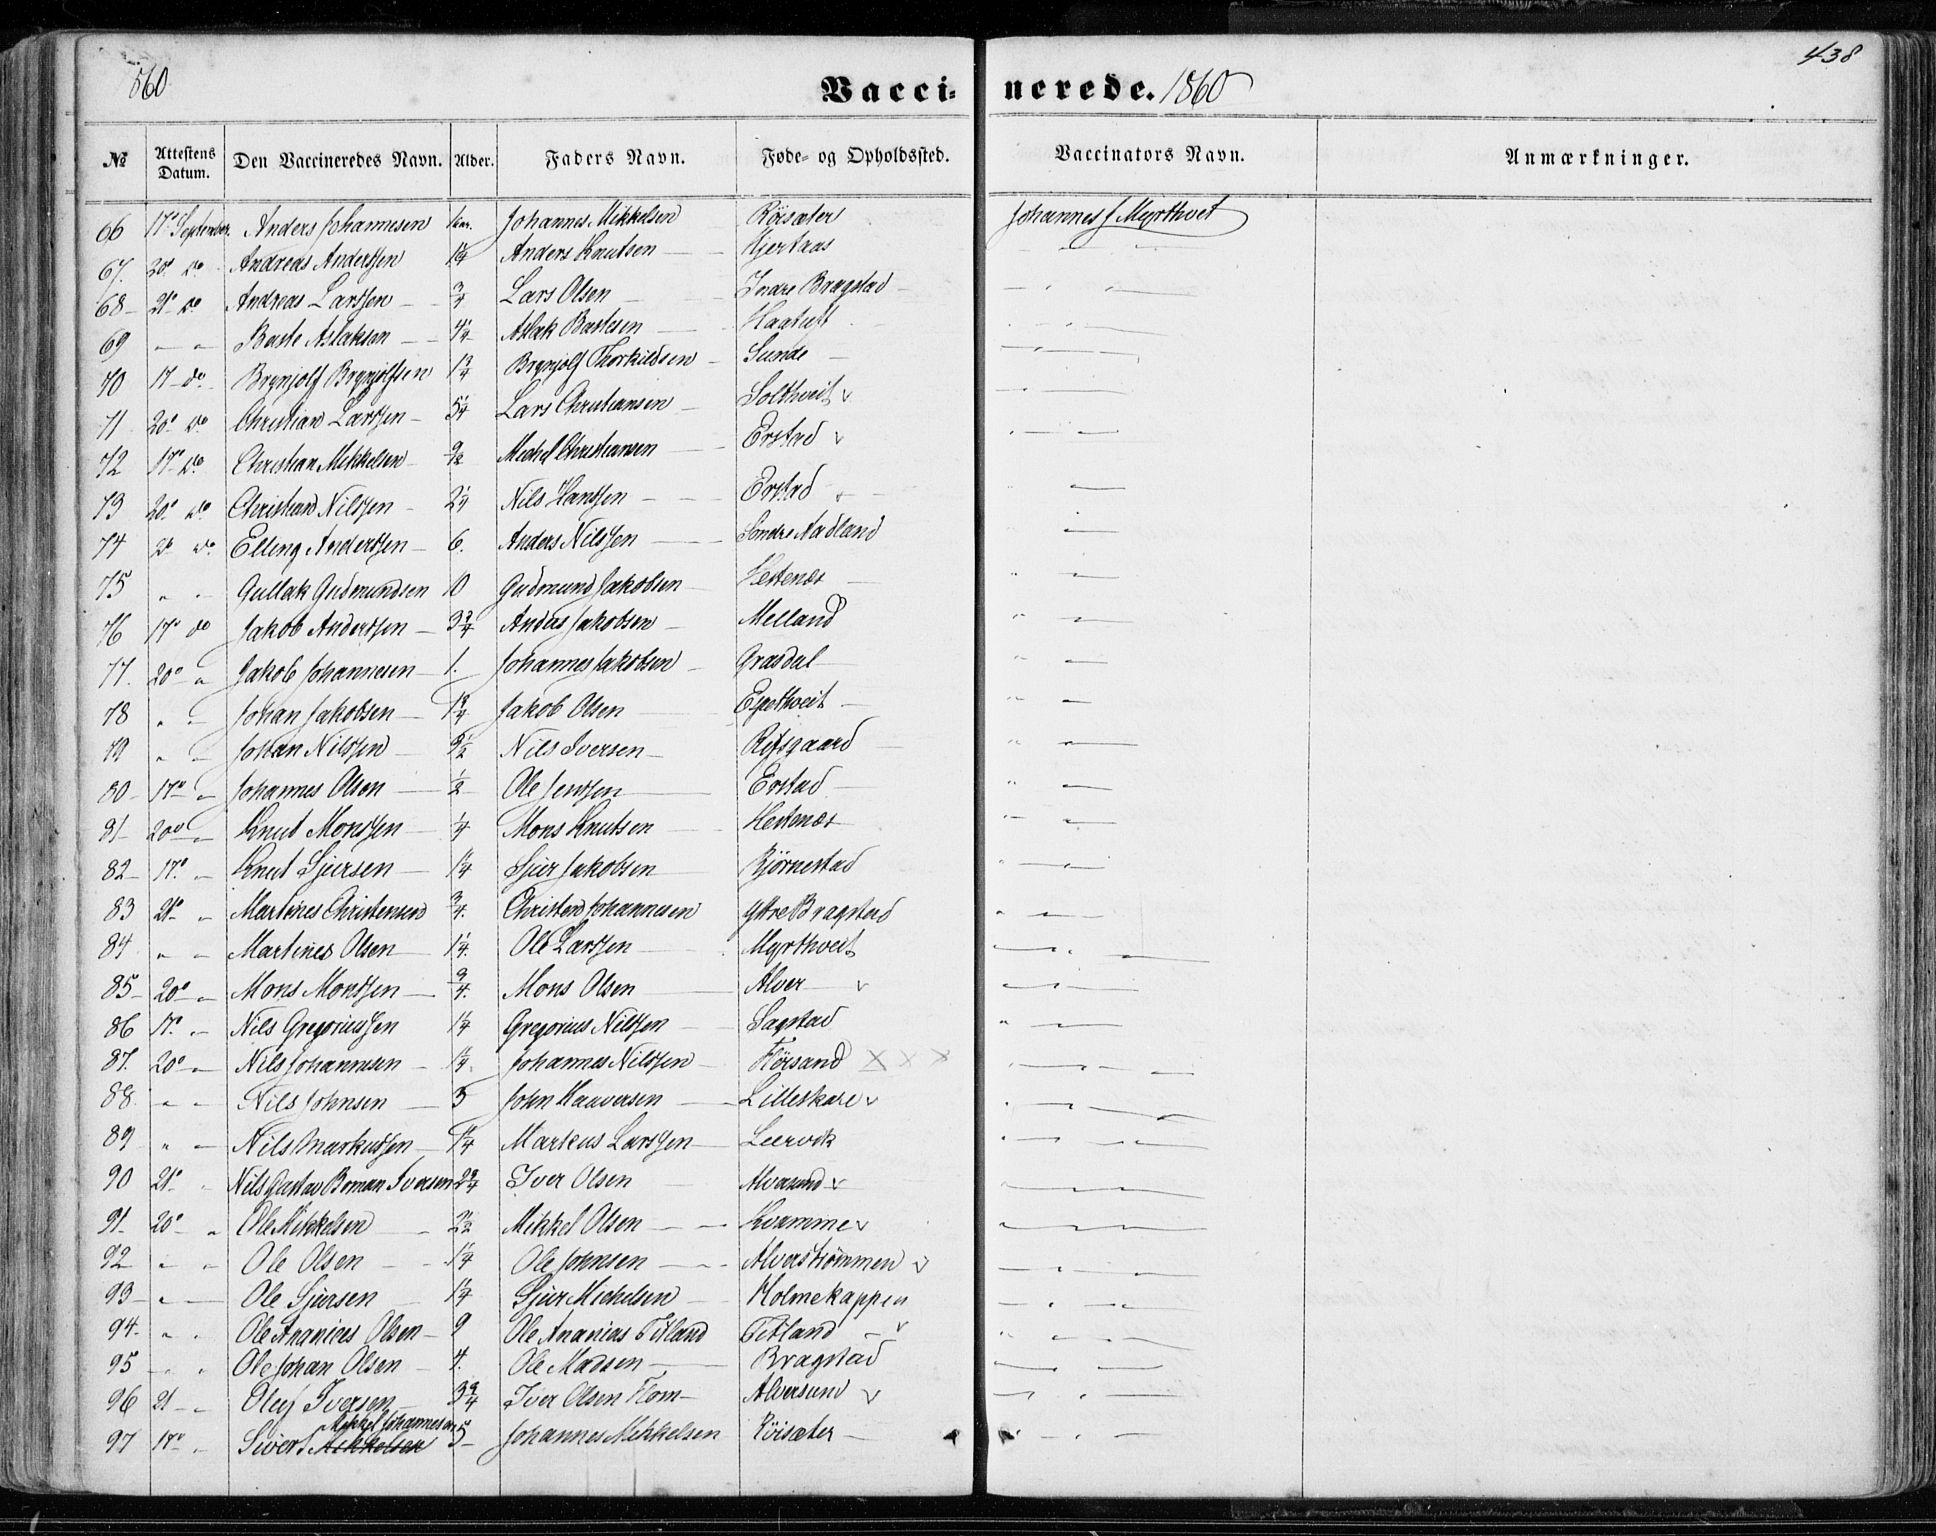 438
1860 Vaccinerede. 1860
№ Attestens Datum. Den Vaccineredes Navn. Alder. Faders Navn. Føde- og Opholdssted. Vaccinators Navn. Anmærkninger.
66 17 September Anders Johannesen Johannes Mikkelsen Röisæter Johannes J Myrthvet
67. 20 do Andreas Anderssen 1 1/4 Anders Knutsen Kjertaas
68 21 do Andreas Larssen 3/4 Lars Olsen Indre Bragstad
69 " " Baste Aslaksen 4 1/4 Aslak Bastesen Haatuft
70 17 do Brynjolf Brynjolfsen 1 3/4 Brynjolf Thorkildsen Sunde
71 20 do Christian Larssen 5 1/4 Lars Christiansen Soltheit v
72 17 do Christian Mikkelsen Michel Christiansen Erstad v
73 20 do Christian Nilssen 2 1/4 Nils Hanssen Erstad
74 do do Elling Anderssen 6. Anders Nilssen Søndre Aadland
75 " " Gullak Gudmundsen 10 Gudmund Jakobsen Hestenæs
76 17 do Jakob Anderssen 3 3/4 Anders Jakobsen Melland
77. 20 " Jakob Johannesen 1. Johannes Jakobsen Grasdal
78 " " Johan Jakobsen 1 3/4 Jakob Olsen Espethveit
79 " " Johan Nilssen Nils Iversen Refsgaard
80 17 " Johannes Olsen 1/2 Ole Jenssen Erstad
81 20 " Knut Monssen 1/4 Mons Knutsen Hestenæs
82 17 " Knut Sjursen 1 1/4 Sjur Jakobsen Bjørnestad
83 21 " Martines Christensen 3/4. Christen Johannesen Ytre Bragstad
84 " " Martines Olsen 1 1/4. Ole Larssen Myrthveit
85 20 " Mons Monssen 3/4. Mons Olsen Alver v
86 17 " Nils Gregoriussen 1 1/4 Gregorius Nilssen Sagstad
87. 20 " Nils Johannesen 1 1/4. Johannes Nilssen Flöisand x x x
88 " " Nils Johnsen 5 John Haaversen Lilleskare v
89 " " Nils Markussen 1 1/4 Markus Larssen Leervik
90 21 " Nils Gustav Boman Iversen 2 3/4 Iver Olsen Alversund v
91. 20 " Ole Mikkelsen 2 1/2 Mikkel Olsen Kvamme v
92 " " Ole Olsen 1 1/4 Ole Johnsen Alverstrømmen v
93 " Ole Sjursen 1 1/4 Sjur Michelsen Holmekappen
94. " " Ole Ananias Olsen 9 Ole Ananias Titland Titland v
95 " " Ole Johan Olsen 4. Ole Madsen Bragstad
96 21 " Oluf Iversen 3 3/4 Iver Olsen Flom Alversund v
Mikkel Johannesen
97 17 " Sivert Mikkelsen 5 Johannes Mikkelsen Röisæter